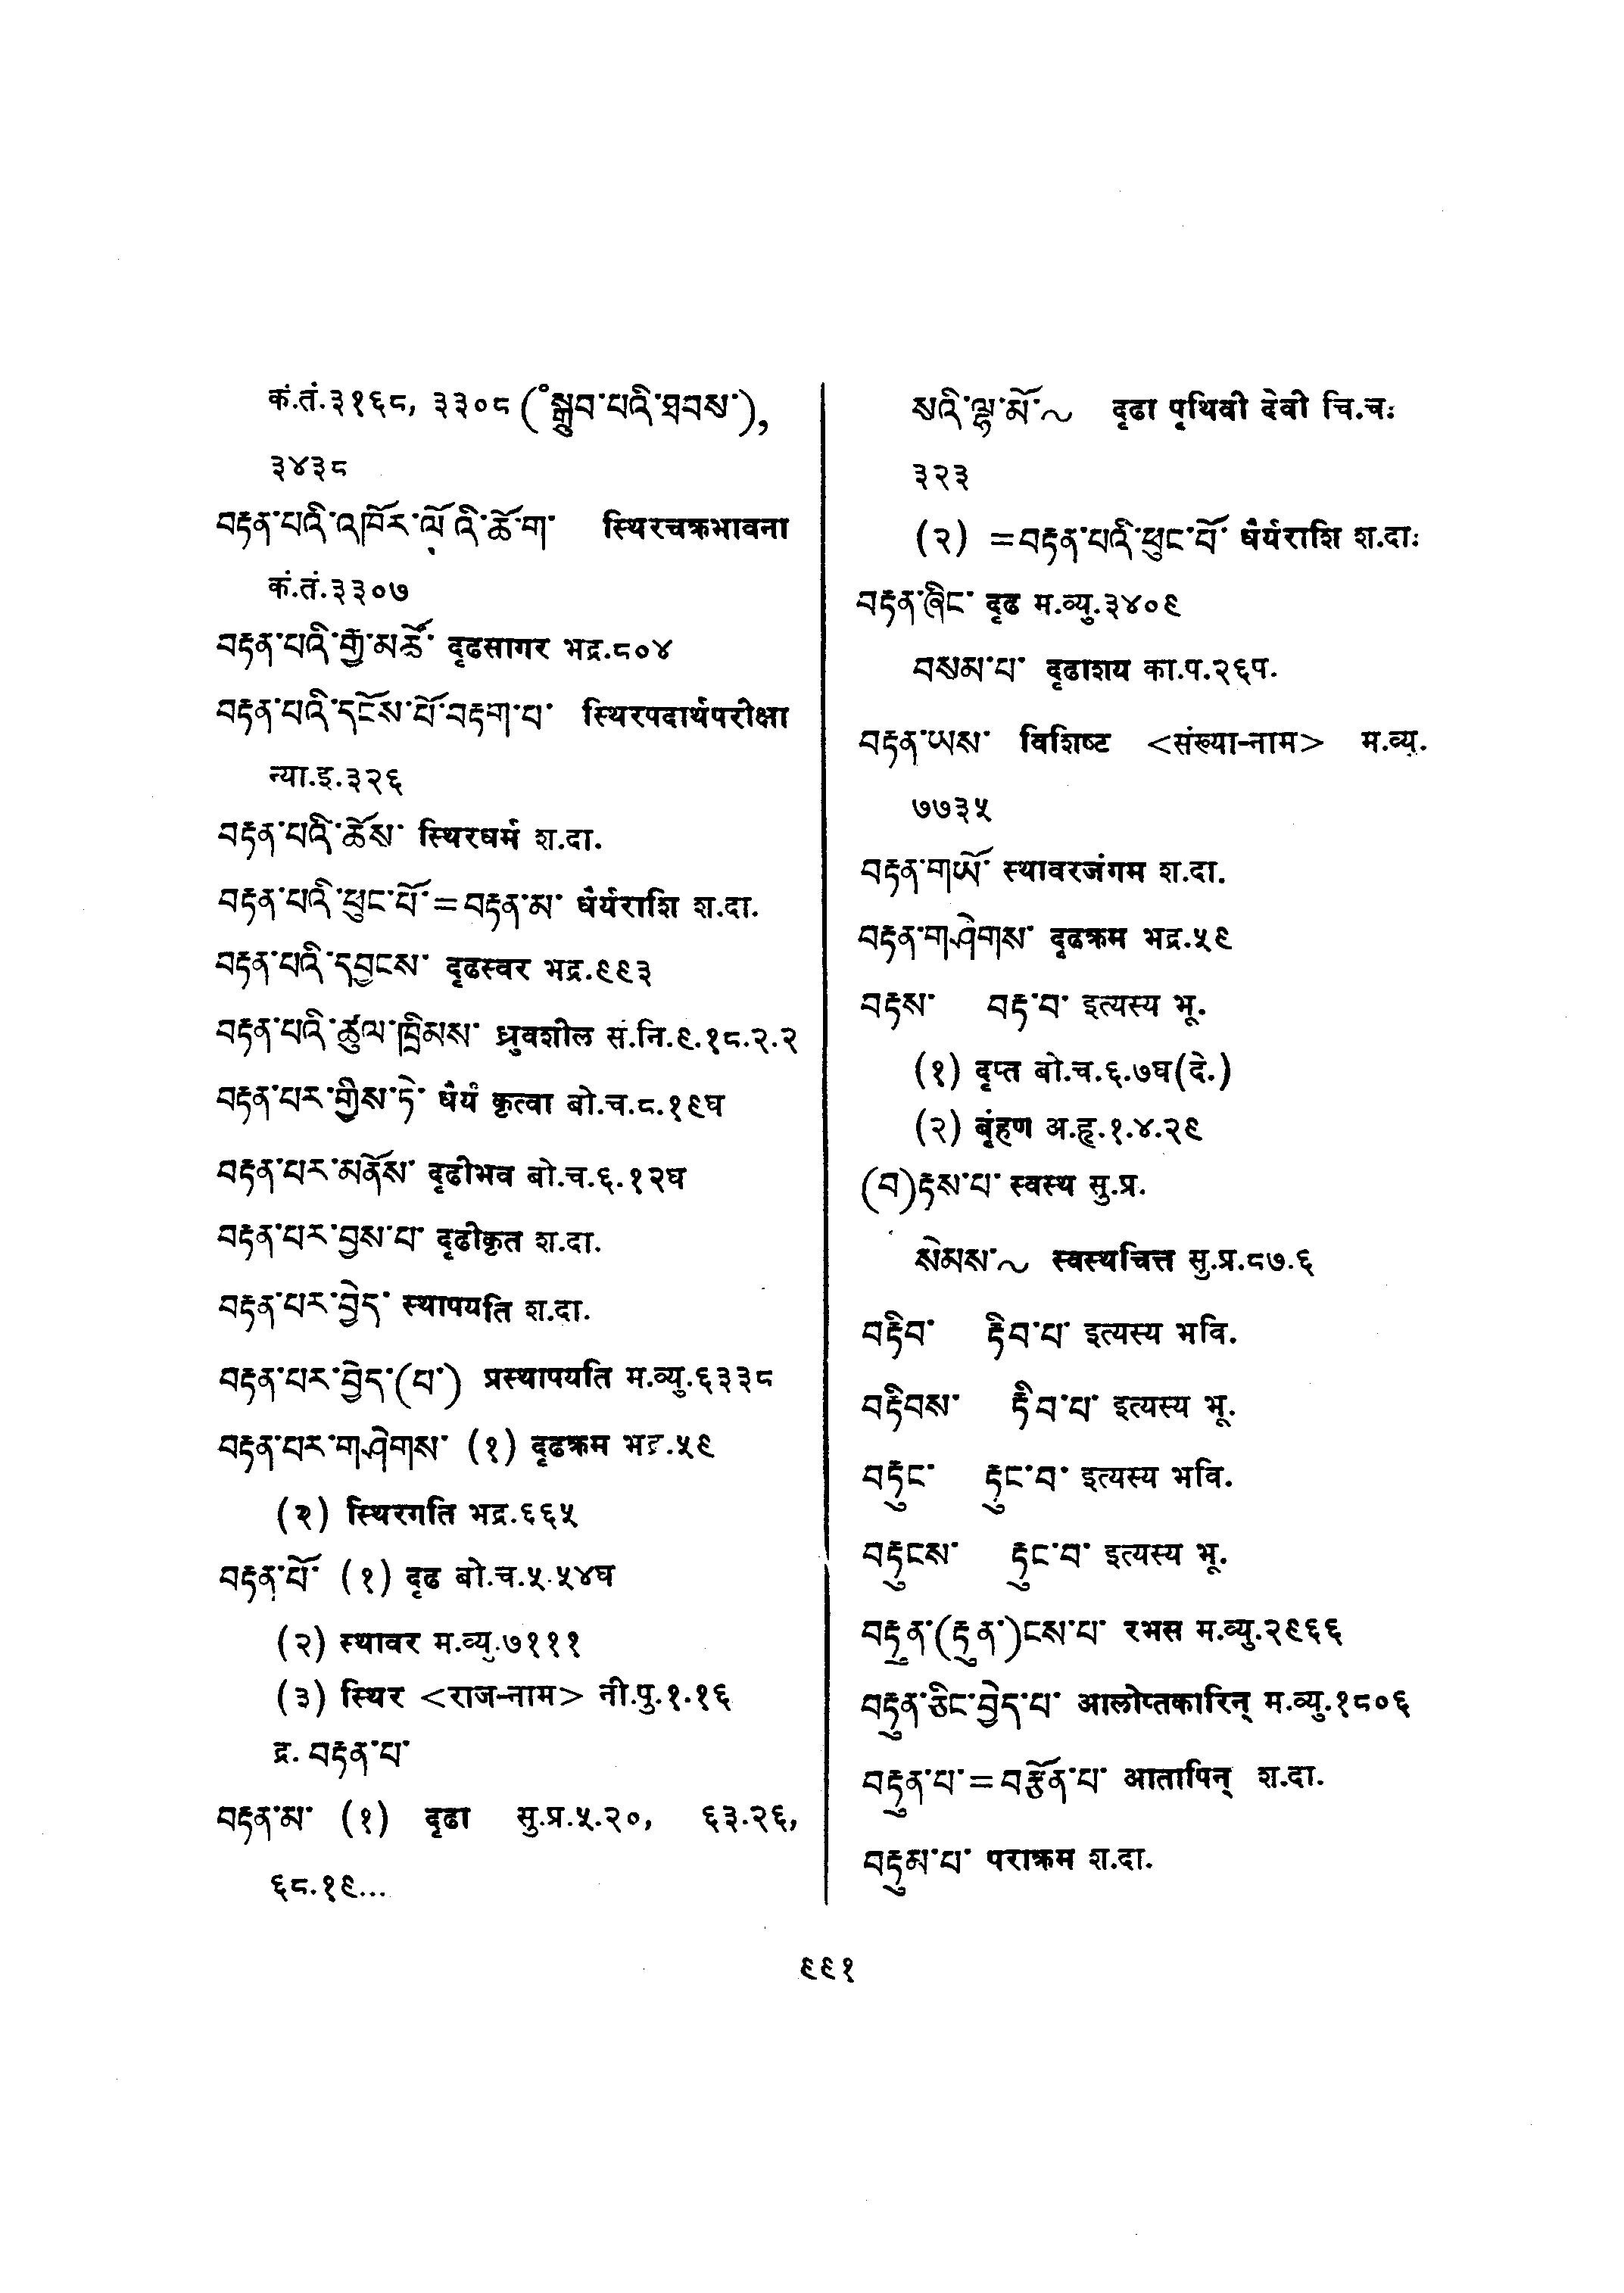 कं.तं.३१६८, ३३०८ (°སྒྲུབ་པའི་ཐབས་),
३४३८
བརྟན་པའི་འཁོར་ལོའི་ཆོ་ག་ स्थिरचक्रभावना
कं.तं.३३०७
བརྟན་པའི་རྒྱ་མཚོ་ दृढसागर भद्र.८०४
བརྟན་པའི་དངོས་པོ་བརྟག་པ་ स्थिरपदार्थपरीक्षा
न्या.इ.३२६
བརྟན་པའི་ཆོས་ स्थिरधर्म श.दा.
བརྟན་པའི་ཕུང་པོ་=བརྟན་མ་ धैर्यराशि श.दा.
བརྟན་པའི་དབྱངས་ दृढस्वर भद्र.९९३
བརྟན་པའི་ཚུལ་ཁྲིམས་ ध्रुवशील सं.नि.९.१८.२.२
བརྟན་པར་གྱིས་ཏེ་ धैर्यं कृत्वा बो.च.८.१९घ
བརྟན་པར་མནོས་ दृढीभव बो.च.६.१२घ
བརྟན་པར་བྱས་པ་ दृढीकृत श.दा.
བརྟན་པར་བྱེད་ स्थापयति श.दा.
བརྟན་པར་བྱེད་(པ་) प्रस्थापयति म.व्यु.६३३८
བརྟན་པར་གཤེགས་ (१) दृढक्रम भद्र.५९
(२) स्थिरगति भद्र.६६५
བརྟན་པོ་ (१) दृढ बो.च.५.५४घ
(२) स्थावर म.व्यु.७१११
(३) स्थिर <राज-नाम> नी.पु.१.१६
द्र. བརྟན་པ་
བརྟན་མ་ (१) दृढा सु.प्र.५.२०, ६३.२६,
६८.१९...
སའི་ལྷ་མོ་~ दृढा पृथिवी देवी चि.च.
३२३
(२) =བརྟན་པའི་ཕུང་པོ་ धैर्यराशि श.दा.
བརྟན་ཞིང་ दृढ म.व्यु.३४०९
བསམ་པ་ दृढाशय का.प.२६प.
བརྟན་ཡས་ विशिष्ट <संख्या-नाम> म.व्यु.
७७३५
བརྟན་གཡོ་ स्थावरजंगम श.दा.
བརྟན་གཤེགས་ दृढक्रम भद्र.५९
བརྟས་ བརྟ་བ་ इत्यस्य भू.
(१) दृप्त बो.च.६.७घ(दे.)
(२) बृंहण अ.हृ.१.४.२९
(བ)རྟས་པ་ स्वस्थ सु.प्र.
སེམས་~ स्वस्थचित्त सु.प्र.८७.६
བརྟིབ་ རྟིབ་པ་ इत्यस्य भवि.
བརྟིབས་ རྟིབ་པ་ इत्यस्य भू.
བརྟུང་ རྟུང་བ་ इत्यस्य भवि.
བརྟུངས་ རྟུང་བ་ इत्यस्य भू.
བརྟུན་(རྟུན་)ངས་པ་ रभस म.व्यु.२९६६
བརྟུན་ཅིང་བྱེད་པ་ आलोप्तकारिन् म.व्यु.१८०६
བརྟུན་པ་=བརྩོན་པ་ आतापिन् श.दा.
བརྟུམ་པ་ पराक्रम श.दा.
९९१